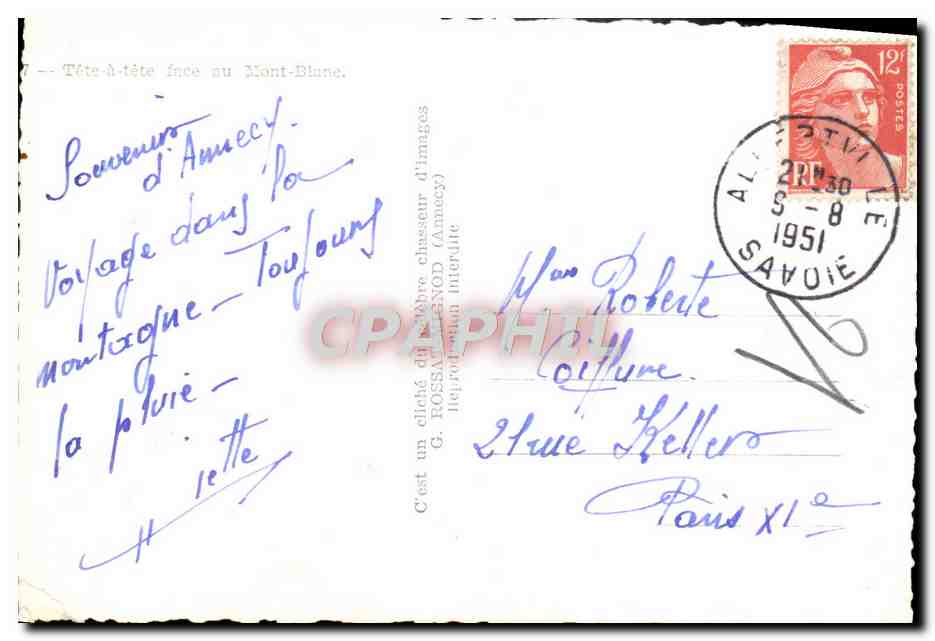 7 — Tête-à-tête face au Mont-Blanc.
Souvenir
d'Annecy.
Voyage dans la
montagne - Toujours
la pluie -
C'est un cliché du célèbre chasseur d'images
G. ROSSAT-MIGNOD (Annecy)
Reproduction interdite
12F
POSTES
RF
ALBERTVILLE
21H30
8
1951
SAVOIE
Mme Roberte
Coiffure.
21 rue Keller
Paris XIe
CPAPHIL